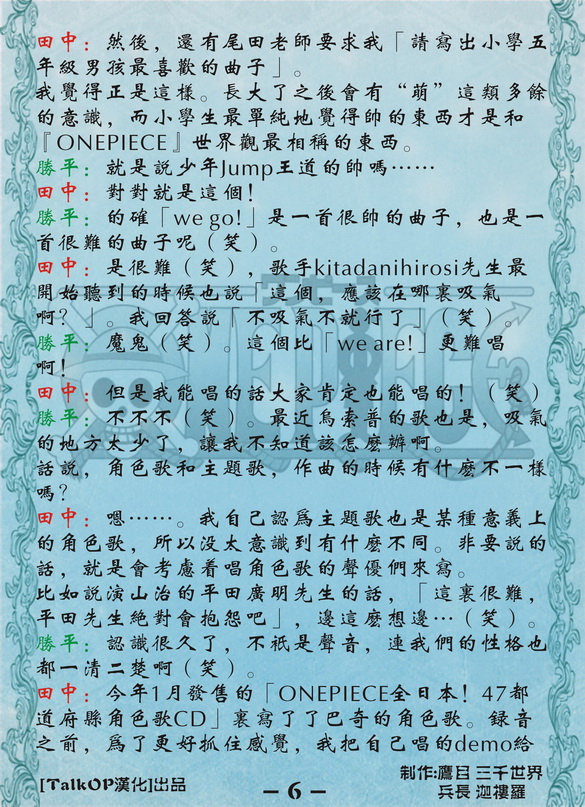 田中：然後，還有尾田老師要求我「請寫出小學五
年級男孩最喜歡的曲子」。
我覺得正是這樣。長大了之後會有“萌”這類多餘
的意識，而小學生最單純地覺得帥的東西才是和
『ONEPIECE』世界觀最相稱的東西。
勝平：就是說少年Jump王道的帥嗎……
田中：對對就是這個！
勝平：的確「we go!」是一首很帥的曲子，也是一
首很難的曲子呢（笑）。
田中：是很難（笑），歌手kitadanihirosi先生最
開始聽到的時候也說「這個，應該在哪裏吸氣
啊？」。我回答說「不吸氣不就行了」（笑）。
勝平：魔鬼（笑）。這個比「we are!」更難唱
啊！
田中：但是我能唱的話大家肯定也能唱的！（笑）
勝平：不不不（笑）。最近烏索普的歌也是，吸氣
的地方太少了，讓我不知道該怎麼辦啊。
話說，角色歌和主題歌，作曲的時候有什麼不一樣
嗎？
田中：嗯……。我自己認爲主題歌也是某種意義上
的角色歌，所以没太意識到有什麼不同。非要說的
話，就是會考慮着唱角色歌的聲優們來寫。
比如說演山治的平田廣明先生的話，「這裏很難，
平田先生絶對會抱怨吧」，邊這麼想邊…（笑）。
勝平：認識很久了，不衹是聲音，連我們的性格也
都一清二楚啊（笑）。
田中：今年1月發售的「ONEPIECE全日本！47都
道府縣角色歌CD」裏寫了了巴奇的角色歌。録音
之前，爲了更好抓住感覺，我把自己唱的demo給
[TalkOP漢化]出品
－6－
制作:鷹目 三千世界
兵長 迦樓羅